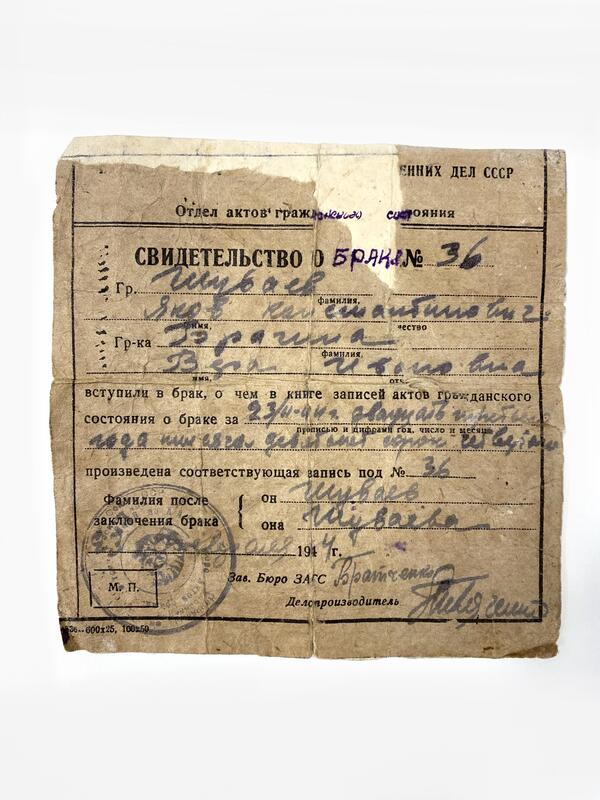 ЕННИХ ДЕЛ СССР
Отдел актов гражданского состояния
СВИДЕТЕЛЬСТВО О БРАКЕ № 36
Гр. Шуваев
фамилия,
Яков Константинович
имя, чество
Гр-ка Брагина
фамилия,
Вера Ивановна
имя, отч
вступили в брак, о чем в книге записей актов гражданского
состояния о браке за двадцать
прописью и цифрами год, число и месяц
года тысяча девятьсот сорок четвертого
произведена соответствующая запись под № 36
Фамилия после заключения брака
он Шуваев
она Шуваева
1944 г.
М. П.
Зав. Бюро ЗАГС Братченко
Делопроизводитель
600х25, 100х50